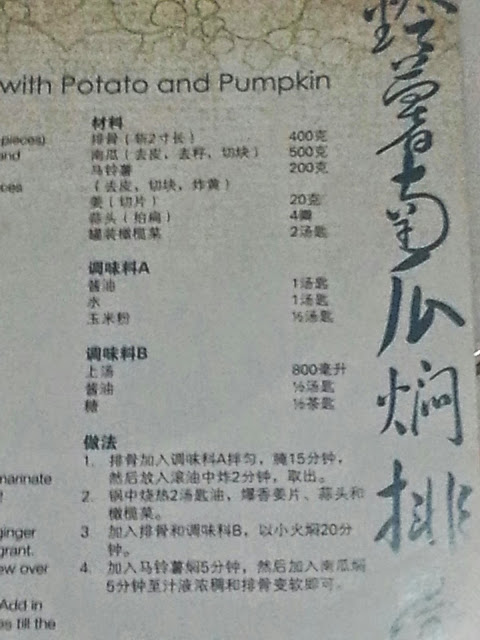 with Potato and Pumpkin
材料
排骨（斩2寸长） 400克
南瓜（去皮，去籽，切块） 500克
马铃薯 200克
（去皮，切块，炸黄）
姜（切片） 20克
蒜头（拍扁） 4瓣
罐装橄榄菜 2汤匙
调味料A
酱油 1汤匙
水 1汤匙
玉米粉 ½汤匙
调味料B
上汤 800毫升
酱油 ½汤匙
糖 ½茶匙
做法
1. 排骨加入调味料A拌匀，腌15分钟，
然后放入滚油中炸2分钟，取出。
2. 锅中烧热2汤匙油，爆香姜片、蒜头和
橄榄菜。
3. 加入排骨和调味料B，以小火焖20分
钟。
4. 加入马铃薯焖5分钟，然后加入南瓜焖
5分钟至汁液浓稠和排骨变软即可。
pieces)
and
marinate
ginger
grant.
ew over
Add in
es till the
铃薯南瓜焖排